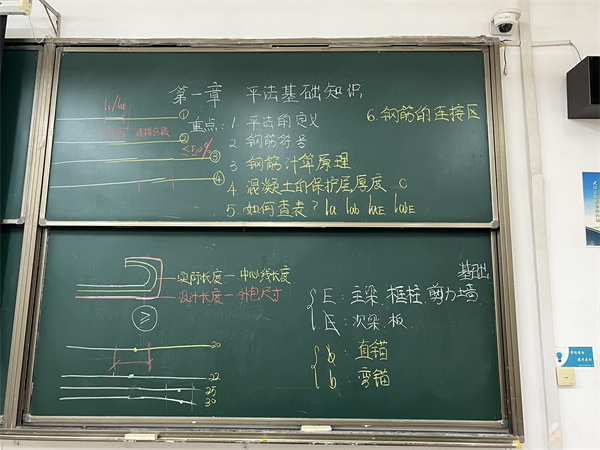 第一章 平法基础知识
重点: 1. 平法的定义
2. 钢筋符号
3 钢筋计算原理
4 混凝土的保护层厚度 C
5. 如何查表? la lab laE labE
6.钢筋的连接区
ll/llE
连接区域
≤50%
①
②
③
④
实际长度—中心线长度
设计长度—外包尺寸
≥
20
22
25
30
基础
E: 主梁.框柱.剪力墙
E: 次梁.板
b: 直锚
b: 弯锚